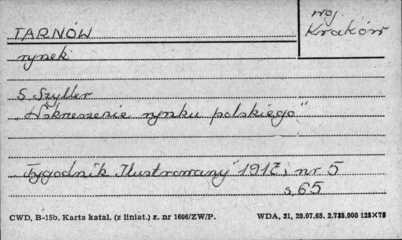 TARNÓW
woj.
Kraków
rynek
S. Szyller
„Wskrzeszenie rynku polskiego"
„Tygodnik Ilustrowany" 1917, nr 5
s. 65
CWD, B-15b, Karta katal. (z liniat.) z. nr 1606/ZW/P.
WDA, 31, 28.07.65. 2.735.000 125×75